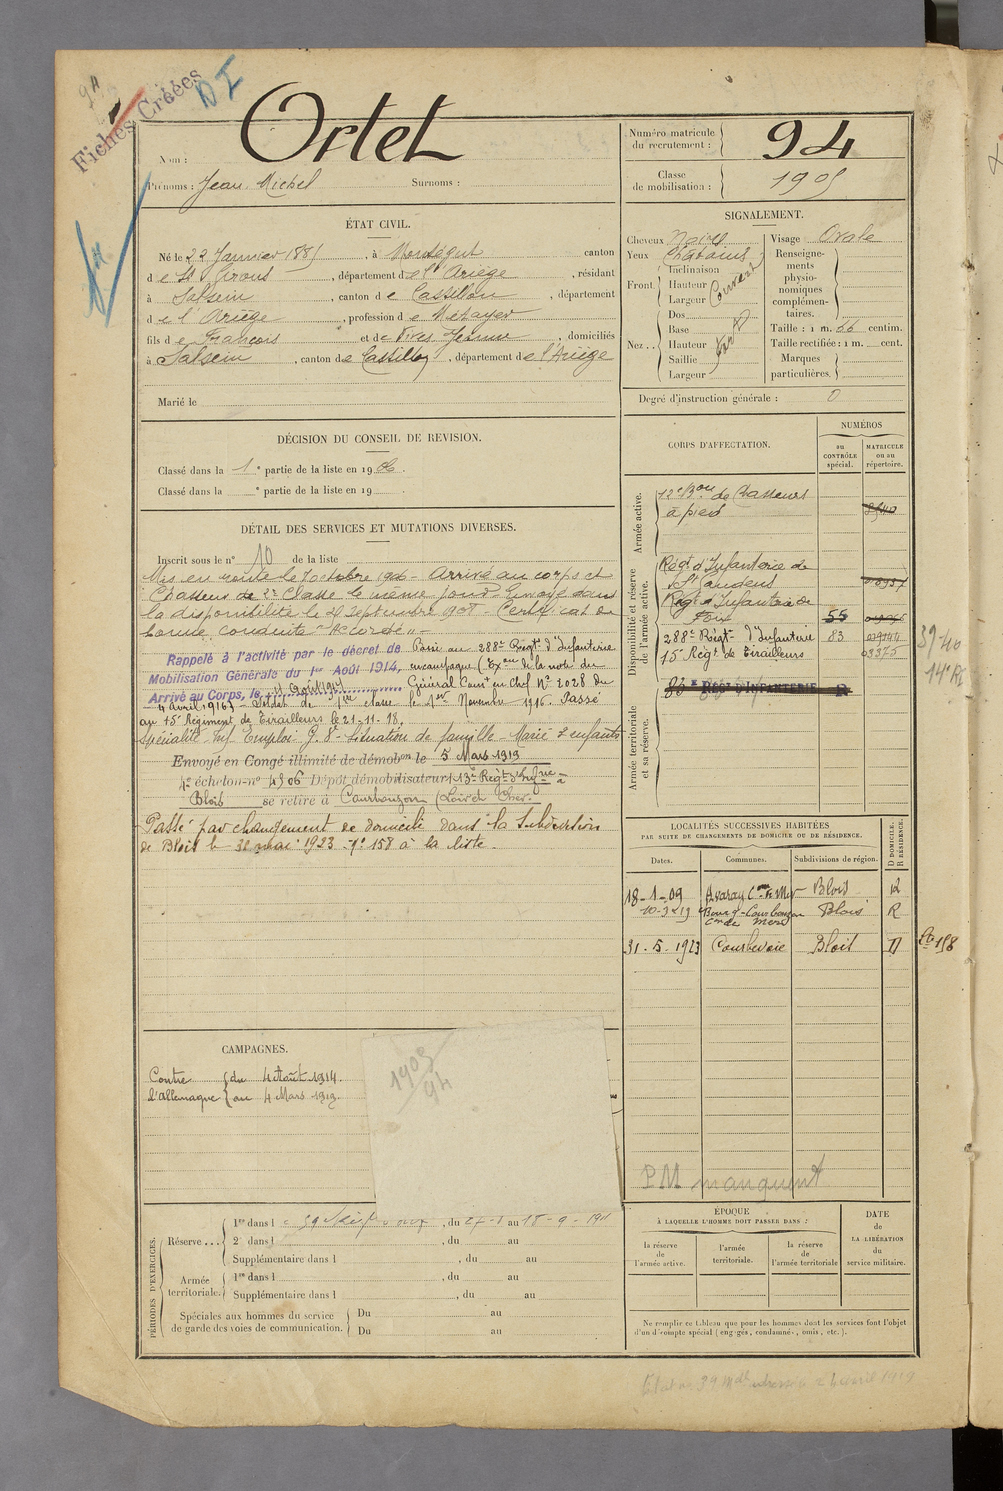 Fiches Créées
D I
Ortet
Nom :
Prénoms : Jean Michel Surnoms :
Numéro matricule
du recrutement : 94
Classe
de mobilisation : 1905
ÉTAT CIVIL.
Né le 22 Janvier 1885, à Montégut canton
de St Girons, département de l'Ariège, résidant
à Salsein, canton de Castillon, département
de l'Ariège, profession de Métayer
fils de François et de Vives Jeanne, domiciliés
à Salsein, canton de Castillon, département de l'Ariège
Marié le
SIGNALEMENT.
Cheveux Noirs
Yeux Châtains
Front. Inclinaison
Hauteur
Largeur
Couvert
Nez. . Dos
Base
Hauteur
Saillie
Largeur
fort
Visage Ovale
Renseigne-
ments
physio-
nomiques
complémen-
taires.
Taille : 1 m. 66 centim.
Taille rectifiée : 1 m. cent.
Marques
particulières.
Degré d'instruction générale : 0
DÉCISION DU CONSEIL DE REVISION.
Classé dans la 1e partie de la liste en 1906.
Classé dans la e partie de la liste en 19
DÉTAIL DES SERVICES ET MUTATIONS DIVERSES.
Inscrit sous le n° 10 de la liste
Mis en route le 7 octobre 1906 - Arrivé au corps et
Chasseur de 2e Classe le même jour. Envoyé dans
la disponibilité le 28 septembre 1908 Certificat de
bonne conduite "Accordé".-
Rappelé à l'activité par le décret de
Mobilisation Générale du 1er Août 1914,
Arrivé au Corps, le 4 Août 1914
Passé au 288e Régt d'Infanterie
en campagne (Exon de la note du
Général Comt en Chef N° 2028 du
4 Avril 1916) - Soldat de 1ère classe le 1er Novembre 1916. Passé
au 15e Régiment de Tirailleurs le 21-11-18.
Spécialité Inf. Emploi G. 8e - Situation de famille - Marié 2 enfants
Envoyé en Congé illimité de démobon le 5 Mars 1919
4e échelon-n° 4506 Dépôt démobilisateur 113e Régt d'Infrie à
Blois se retire à Courbouzon (Loir et Cher.
Passé par changement de domicile dans la subdivision
de Blois le 31 mai 1923 - n° 158 à la liste.
CORPS D'AFFECTATION.
NUMÉROS
au
CONTRÔLE
spécial.
MATRICULE
ou au
répertoire.
Armée active.
12e Bon de Chasseurs
à pied
Disponibilité et réserve
de l'armée active.
Régt d'Infanterie de
St Gaudens
Régt d'Infanterie de
Foix 55
288e Régt d'Infanterie 83
15e Régt de Tirailleurs 03375
RÉGt D'INFANTERIE
Armée territoriale
et sa réserve.
LOCALITÉS SUCCESSIVES HABITÉES
PAR SUITE DE CHANGEMENTS DE DOMICILE OU DE RÉSIDENCE.
Dates. Communes. Subdivisions de région. D DOMICILE. R RÉSIDENCE.
18-1-09 Avaray Con de Mer Blois R
10-3-19 Bourg-Courbouzon Con de Mer Blois R
31-5-1923 Courbevoie Blois D
158
CAMPAGNES.
Contre
l'Allemagne
du 4 Août 1914.
au 4 Mars 1919.
1905
94
P M manquent
PÉRIODES D'EXERCICES.
Réserve . . . 1re dans l , du 27-8 au 18-9-1911
2e dans l , du au
Supplémentaire dans l , du au
Armée
territoriale. 1re dans l , du au
Supplémentaire dans l , du au
Spéciales aux hommes du service
de garde des voies de communication. Du au
Du au
ÉPOQUE
À LAQUELLE L'HOMME DOIT PASSER DANS :
la réserve
de
l'armée active.
l'armée
territoriale.
la réserve
de
l'armée territoriale
DATE
de
LA LIBÉRATION
du
service militaire.
Ne remplir ce tableau que pour les hommes dont les services font l'objet
d'un décompte spécial (engagés, condamnés, omis, etc.).